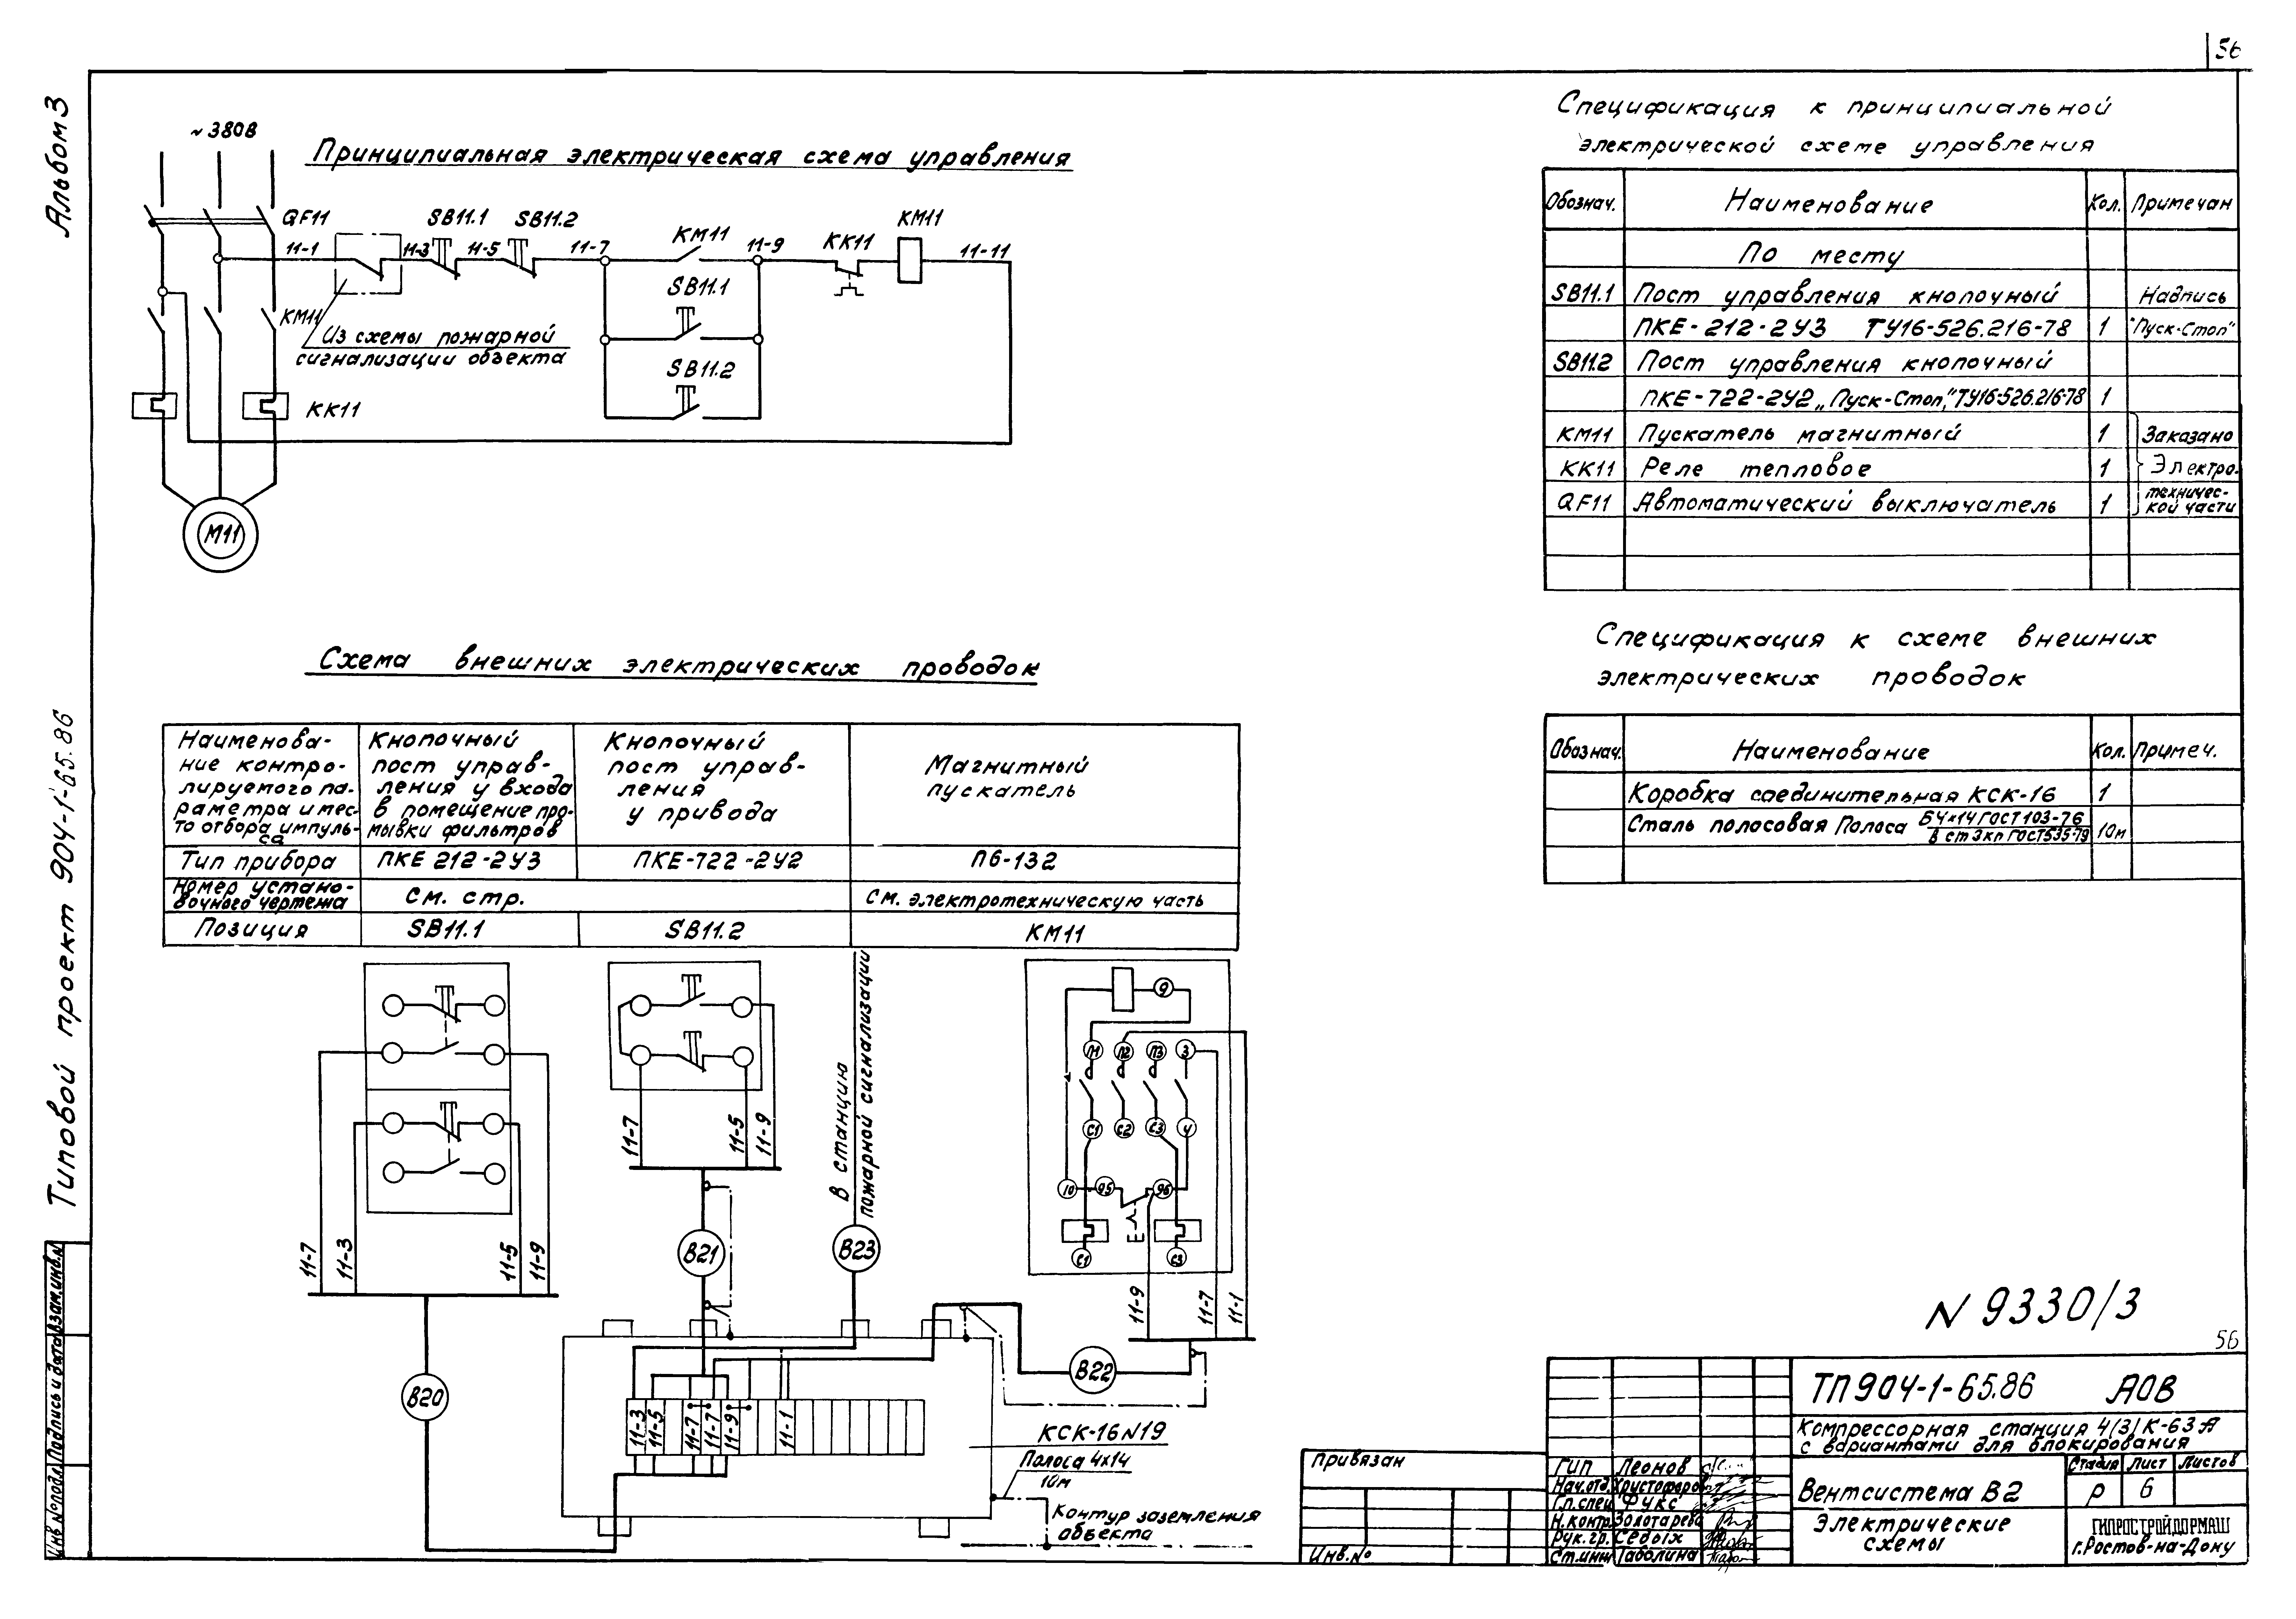 56
Альбом 3
Типовой проект 904-1-65.86
Инв.№ подл. Подпись и дата Взам.инв.№
~380В
Принципиальная электрическая схема управления
QF11
11-1
11-3
SB11.1
11-5
SB11.2
11-7
KM11
11-9
KK11
KM11
11-11
SB11.1
SB11.2
KM11
Из схемы пожарной
сигнализации объекта
KK11
M11
Спецификация к принципиальной
электрической схеме управления
Обознач. Наименование Кол. Примечан
По месту
SB11.1 Пост управления кнопочный Надпись
ПКЕ-212-2У3 ТУ16-526.216-78 1 "Пуск-Стоп"
SB11.2 Пост управления кнопочный
ПКЕ-722-2У2 „Пуск-Стоп," ТУ16-526.216-78 1
KM11 Пускатель магнитный 1 Заказано
KK11 Реле тепловое 1 Электро-
QF11 Автоматический выключатель 1 техничес-
кой части
Спецификация к схеме внешних
электрических проводок
Обознач. Наименование Кол. Примеч.
Коробка соединительная КСК-16 1
Сталь полосовая Полоса Б4х14 ГОСТ 103-76
В ст 3 кп ГОСТ 535-79 10м
Схема внешних электрических проводок
Наименова-
ние контро-
лируемого па-
раметра и мес-
то отбора импуль-
са
Кнопочный
пост управ-
ления у входа
в помещение про-
мывки фильтров
Кнопочный
пост управ-
ления
у привода
Магнитный
пускатель
Тип прибора ПКЕ 212-2У3 ПКЕ-722-2У2 П6-132
Номер устано-
вочного чертежа См. стр. См. электротехническую часть
Позиция SB11.1 SB11.2 KM11
11-7
11-3
11-5
11-9
В20
11-7
11-5
11-9
В21
В станцию
пожарной сигнализации
В23
9
Л1 Л2 Л3 3
С1 С2 С3 4
10 95 96
С1 С3
11-9
11-7
11-1
В22
11-3
11-5
11-7
11-7
11-9
11-1
КСК-16 N19
Полоса 4х14
10м
Контур заземления
объекта
N 9330/3
56
Привязан
Инв.№
ТП 904-1-65.86 АОВ
Компрессорная станция 4(3)К-63А
с вариантами для блокирования
ГИП Леонов
Нач.отд. Христофоров
Гл.спец Фукс
Н.контр. Золотарева
Рук.гр. Седых
Ст.инж Таболина
Вентсистема В2
Стадия Лист Листов
Р 6
Электрические
схемы
ГИПРОСТРОЙДОРМАШ
г.Ростов-на-Дону